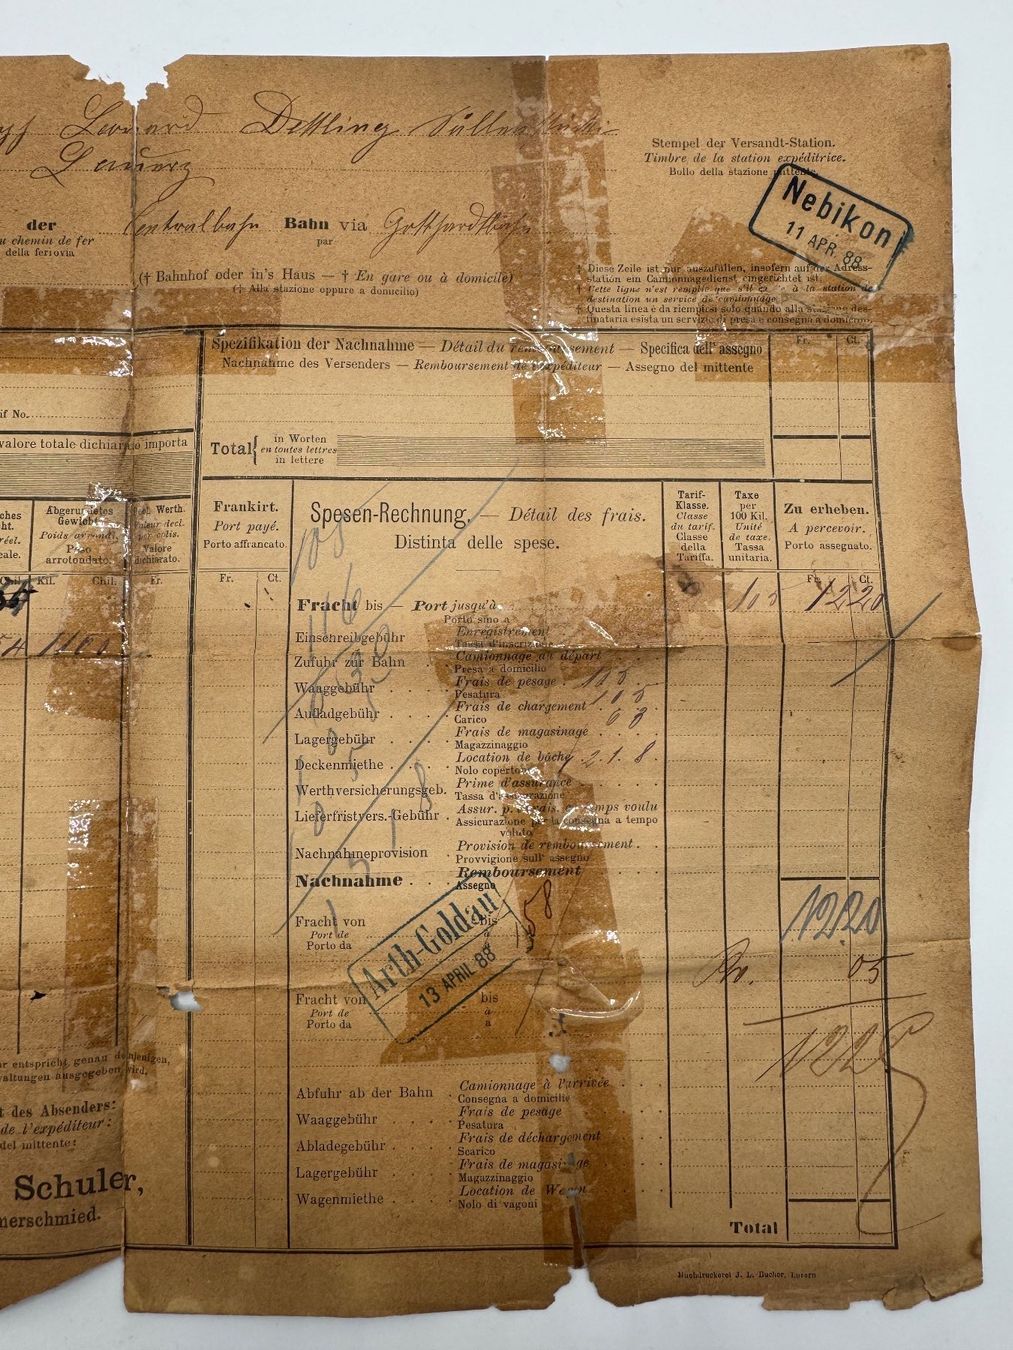 Leonard Dettling
Lauerz
Stempel der Versandt-Station.
Timbre de la station expéditrice.
Bollo della stazione mittente.
Nebikon
11 APR. 88
der Centralbahn Bahn via Gotthardbahn
u chemin de fer par
della ferrovia
(† Bahnhof oder in's Haus — † En gare ou à domicile)
(† Alla stazione oppure a domicilio)
† Diese Zeile ist nur auszufüllen, insofern auf der Adress-
station ein Camionnagedienst eingerichtet ist.
† Cette ligne n'est remplie que s'il existe à la station de
destination un service de camionnage.
† Questa linea è da riempiesi solo quando alla stazione des-
tinataria esista un servizio di presa e consegna a domicilio.
Spezifikation der Nachnahme — Détail du remboursement — Specifica dell' assegno
Nachnahme des Versenders — Remboursement de l'expéditeur — Assegno del mittente
Fr. Ct.
if No.
valore totale dichiarato importa
Total { in Worten
en toutes lettres
in lettere
Abgerundetes
Gewicht.
Poids arrond.
Peso
arrotondato.
Kil. Chil.
Decl. Werth.
Valeur decl.
per colis.
Valore
dichiarato.
Fr.
Frankirt.
Port payé.
Porto affrancato.
Fr. Ct.
Spesen-Rechnung. — Détail des frais.
Distinta delle spese.
Tarif-
Klasse.
Classe
du tarif.
Classe
della
Tariffa.
Taxe
per
100 Kil.
Unité
de taxe.
Tassa
unitaria.
Zu erheben.
A percevoir.
Porto assegnato.
Fr. Ct.
Fracht bis — Port jusqu'à 103 12 20
Porto sino a
Einschreibgebühr Enregistrement
Tassa d'inscrizione
Zufuhr zur Bahn Camionnage au départ
Presa a domicilio
Waaggebühr Frais de pesage
Pesatura
Aufladgebühr Frais de chargement
Carico
Lagergebühr Frais de magasinage
Magazzinaggio
Deckenmiethe Location de bâche
Nolo coperto
Werthversicherungsgeb. Prime d'assurance
Tassa d'assicurazione
Lieferfristvers.-Gebühr Assur. p. livrais. en temps voulu
Assicurazione per la consegna a tempo
voluto
Nachnahmeprovision Provision de remboursement
Provvigione sull' assegno
Nachnahme Remboursement
Assegno
12 20
Arth-Goldau
13 APRIL 88
Fracht von bis
Port de à
Porto da a
05
12 25
Fracht von bis
Port de à
Porto da a
Abfuhr ab der Bahn Camionnage à l'arrivée
Consegna a domicilio
Waaggebühr Frais de pesage
Pesatura
Abladegebühr Frais de déchargement
Scarico
Lagergebühr Frais de magasinage
Magazzinaggio
Wagenmiethe Location de Wagon
Nolo di vagoni
Total
r entspricht genau denjenigen,
waltungen ausgegeben wird.
t des Absenders:
de l'expéditeur:
del mittente:
Schuler,
merschmied.
Buchdruckerei J. L. Bucher, Luzern